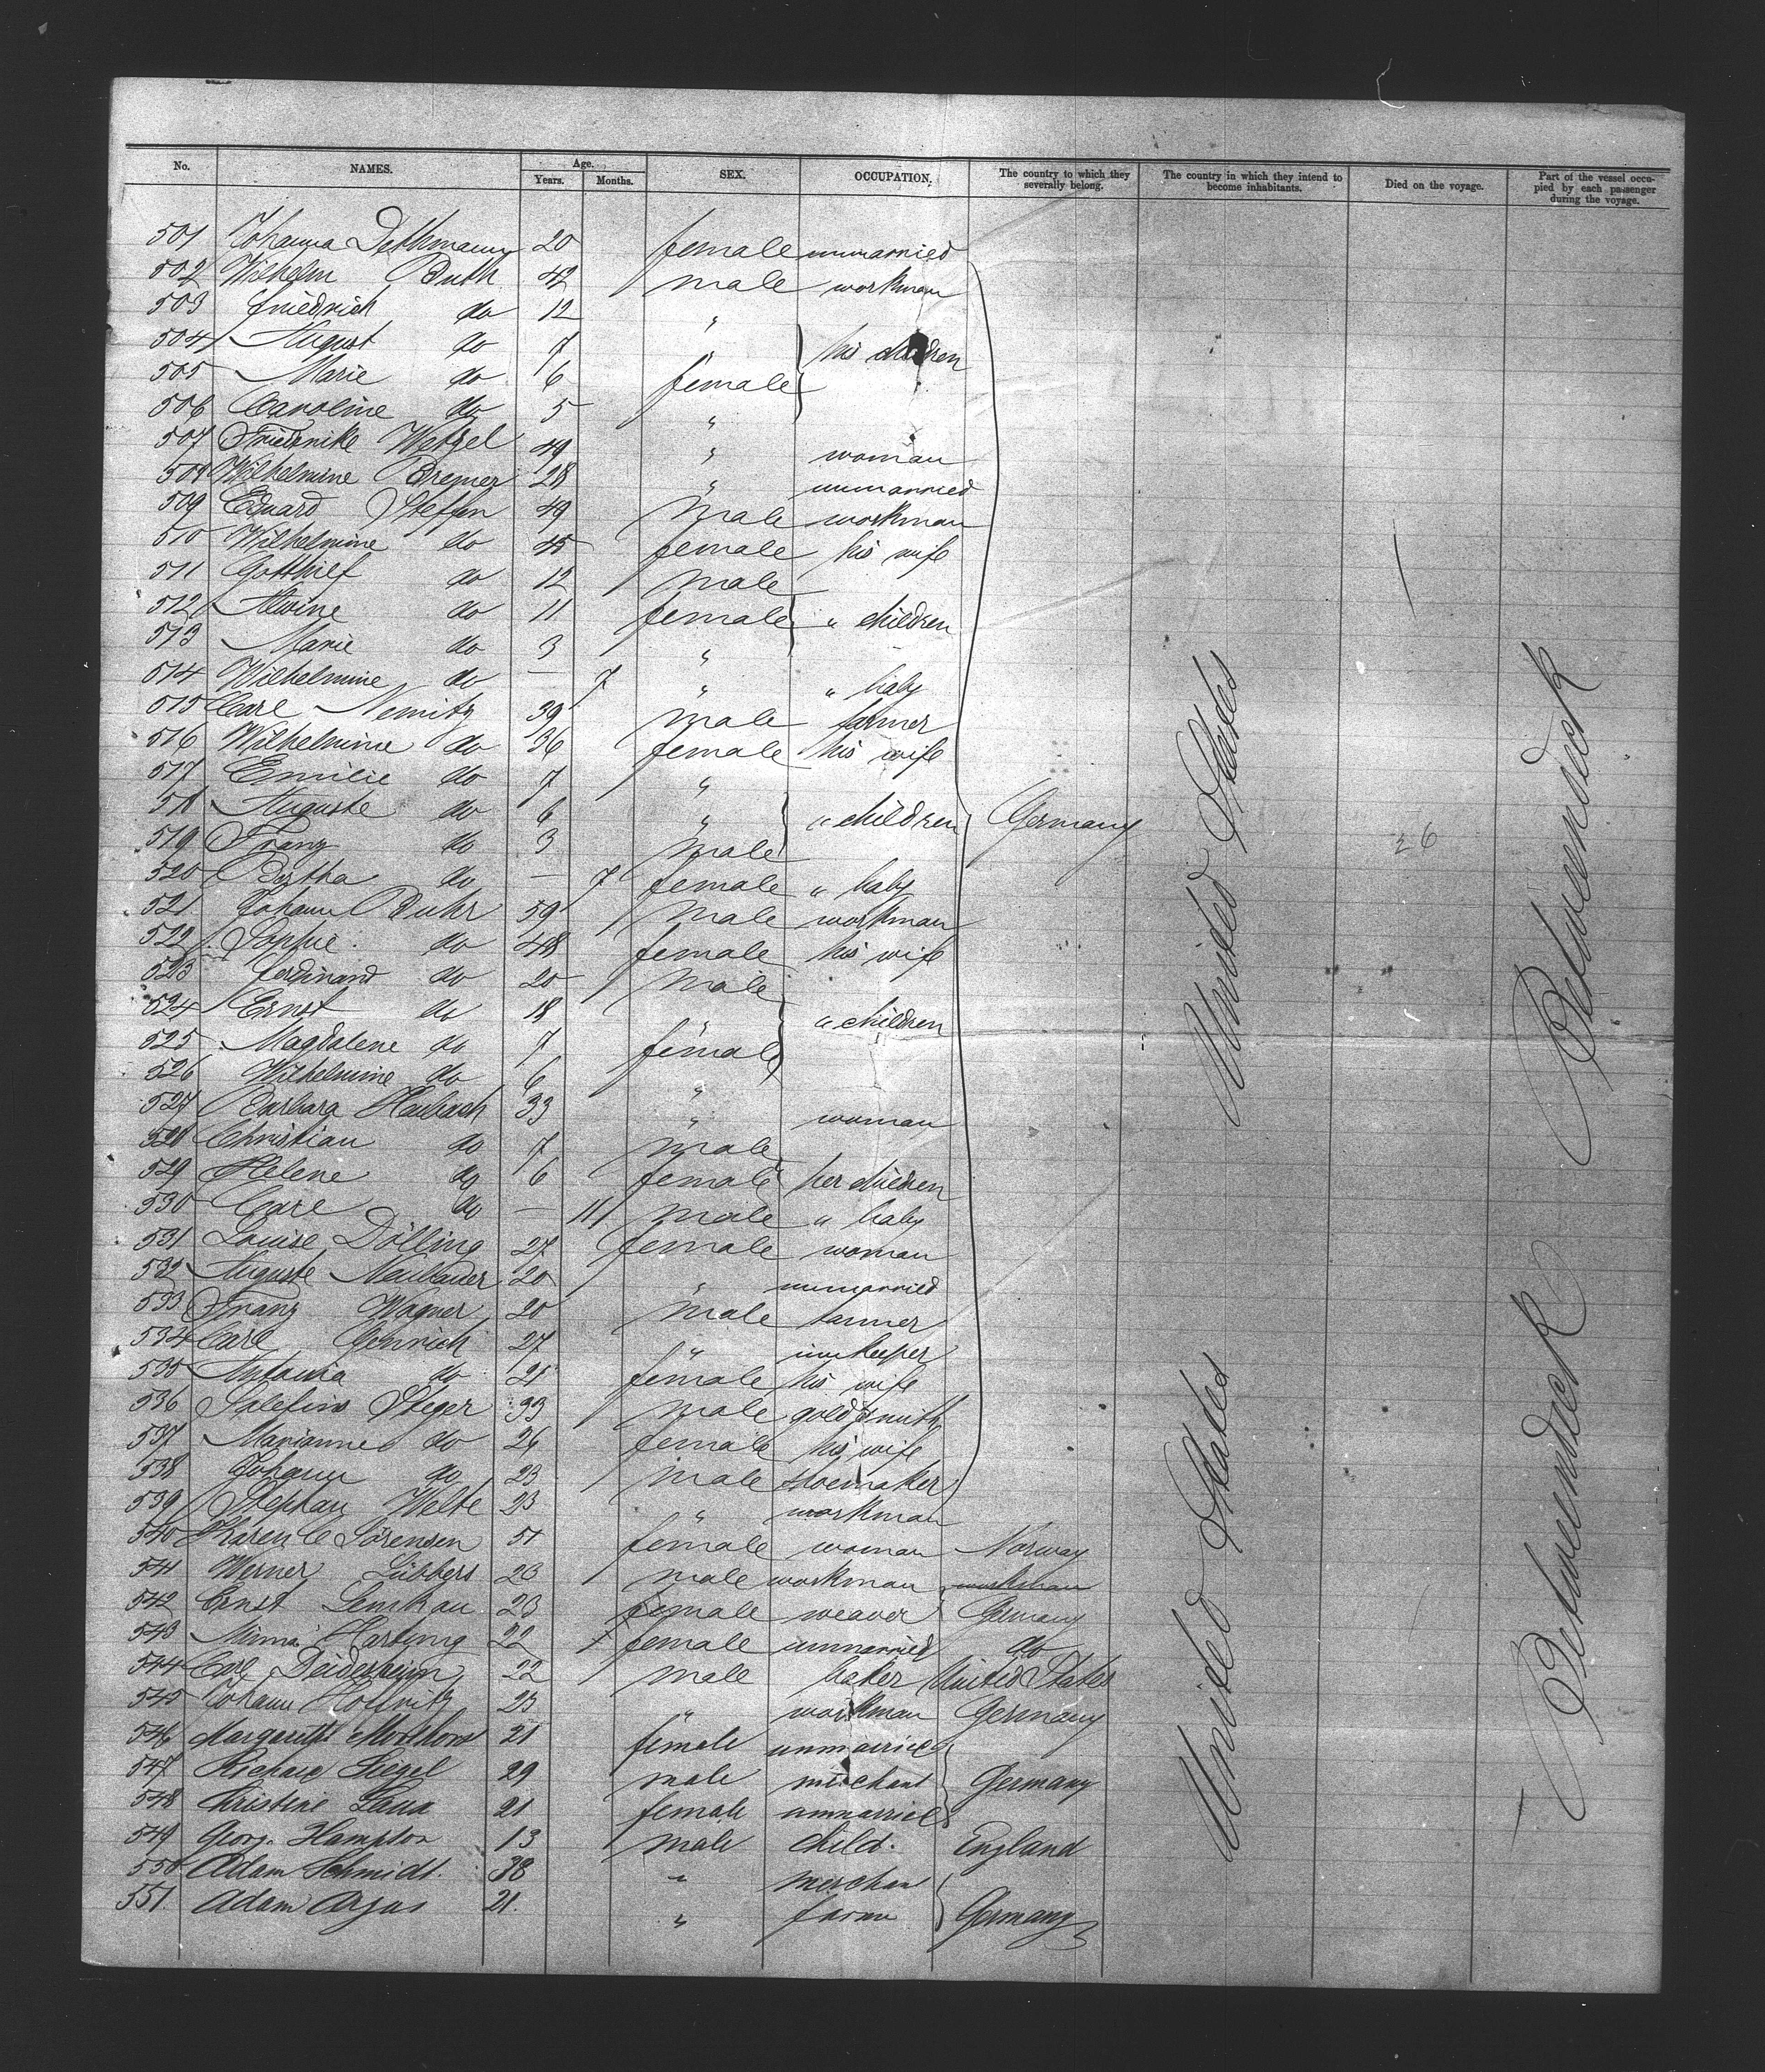 No. NAMES. Age. Years. Months. SEX. OCCUPATION. The country to which they severally belong. The country in which they intend to become inhabitants. Died on the voyage. Part of the vessel occupied by each passenger during the voyage.
501 Johanna Dethmann 20 female unmarried
502 Wilhelm Buth 42 male workman
503 Friedrich do 12 "
504 August do 7 " his children
505 Marie do 6 female
506 Caroline do 5 "
507 Friederike Wetzel 49 " woman
508 Wilhelmine Bremer 28 " unmarried
509 Eduard Steffen 49 male workman
510 Wilhelmine do 45 female his wife
511 Gotthilf do 12 male
512 Alwine do 11 female " children
513 Marie do 3 "
514 Wilhelmine do — 7 " " baby
515 Carl Nemitz 39 male farmer
516 Wilhelmine do 36 female his wife
517 Emilie do 7 "
518 Auguste do 6 " " children Germany United States 26 Betweendeck
519 Franz do 3 male
520 Bertha do — 7 female " baby
521 Johann Buhr 59 male workman
522 Sophie do 48 female his wife
523 Ferdinand do 20 male
524 Ernst do 18 " " children
525 Magdalene do 7 female
526 Wilhelmine do 6 "
527 Barbara Haubach 33 " woman
528 Christian do 7 male
529 Helene do 6 female her children
530 Carl do — 11 male " baby
531 Louise Dölling 27 female woman
532 Auguste Neubauer 20 " unmarried
533 Franz Wagner 20 male farmer
534 Carl Gehrich 27 " innkeeper
535 Antonia do 21 female his wife
536 Steger 33 male goldsmith
537 Marianne do 26 female his wife
538 Johann do 23 male shoemaker
539 Stephan Welte 23 " workman
540 Karen C Sörensen 51 female woman Norway
541 Werner Lübbers 23 male workman workman
542 Ernst Lemkau 23 female weaver Germany United States Betweendeck
543 Minna Hartung 22 female unmarried do
544 Carl Deidesheim 22 male baker United States
545 Johann 25 " workman Germany
546 21 female unmarried
547 Richard Siegel 29 male merchant Germany
548 Kristine Laua 21 female unmarried
549 Georg. Hampton 13 male child. England
550 Adam Schmidt. 38 " merchan
551. Adam Argus 21. " farm Germany